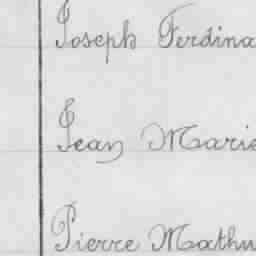 Joseph Ferdina
Jean Marie
Pierre Mathu